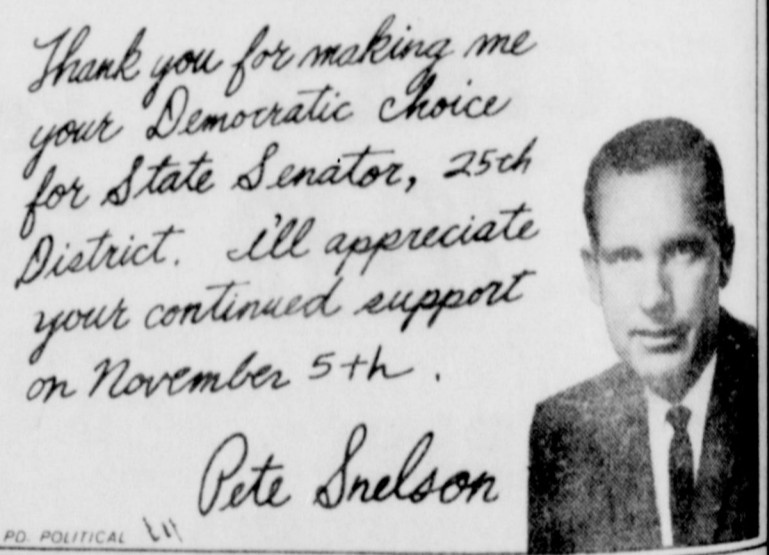 Thank you for making me
your Democratic choice
for State Senator, 25th
District. I'll appreciate
your continued support
on November 5th.
Pete Snelson
PD. POLITICAL